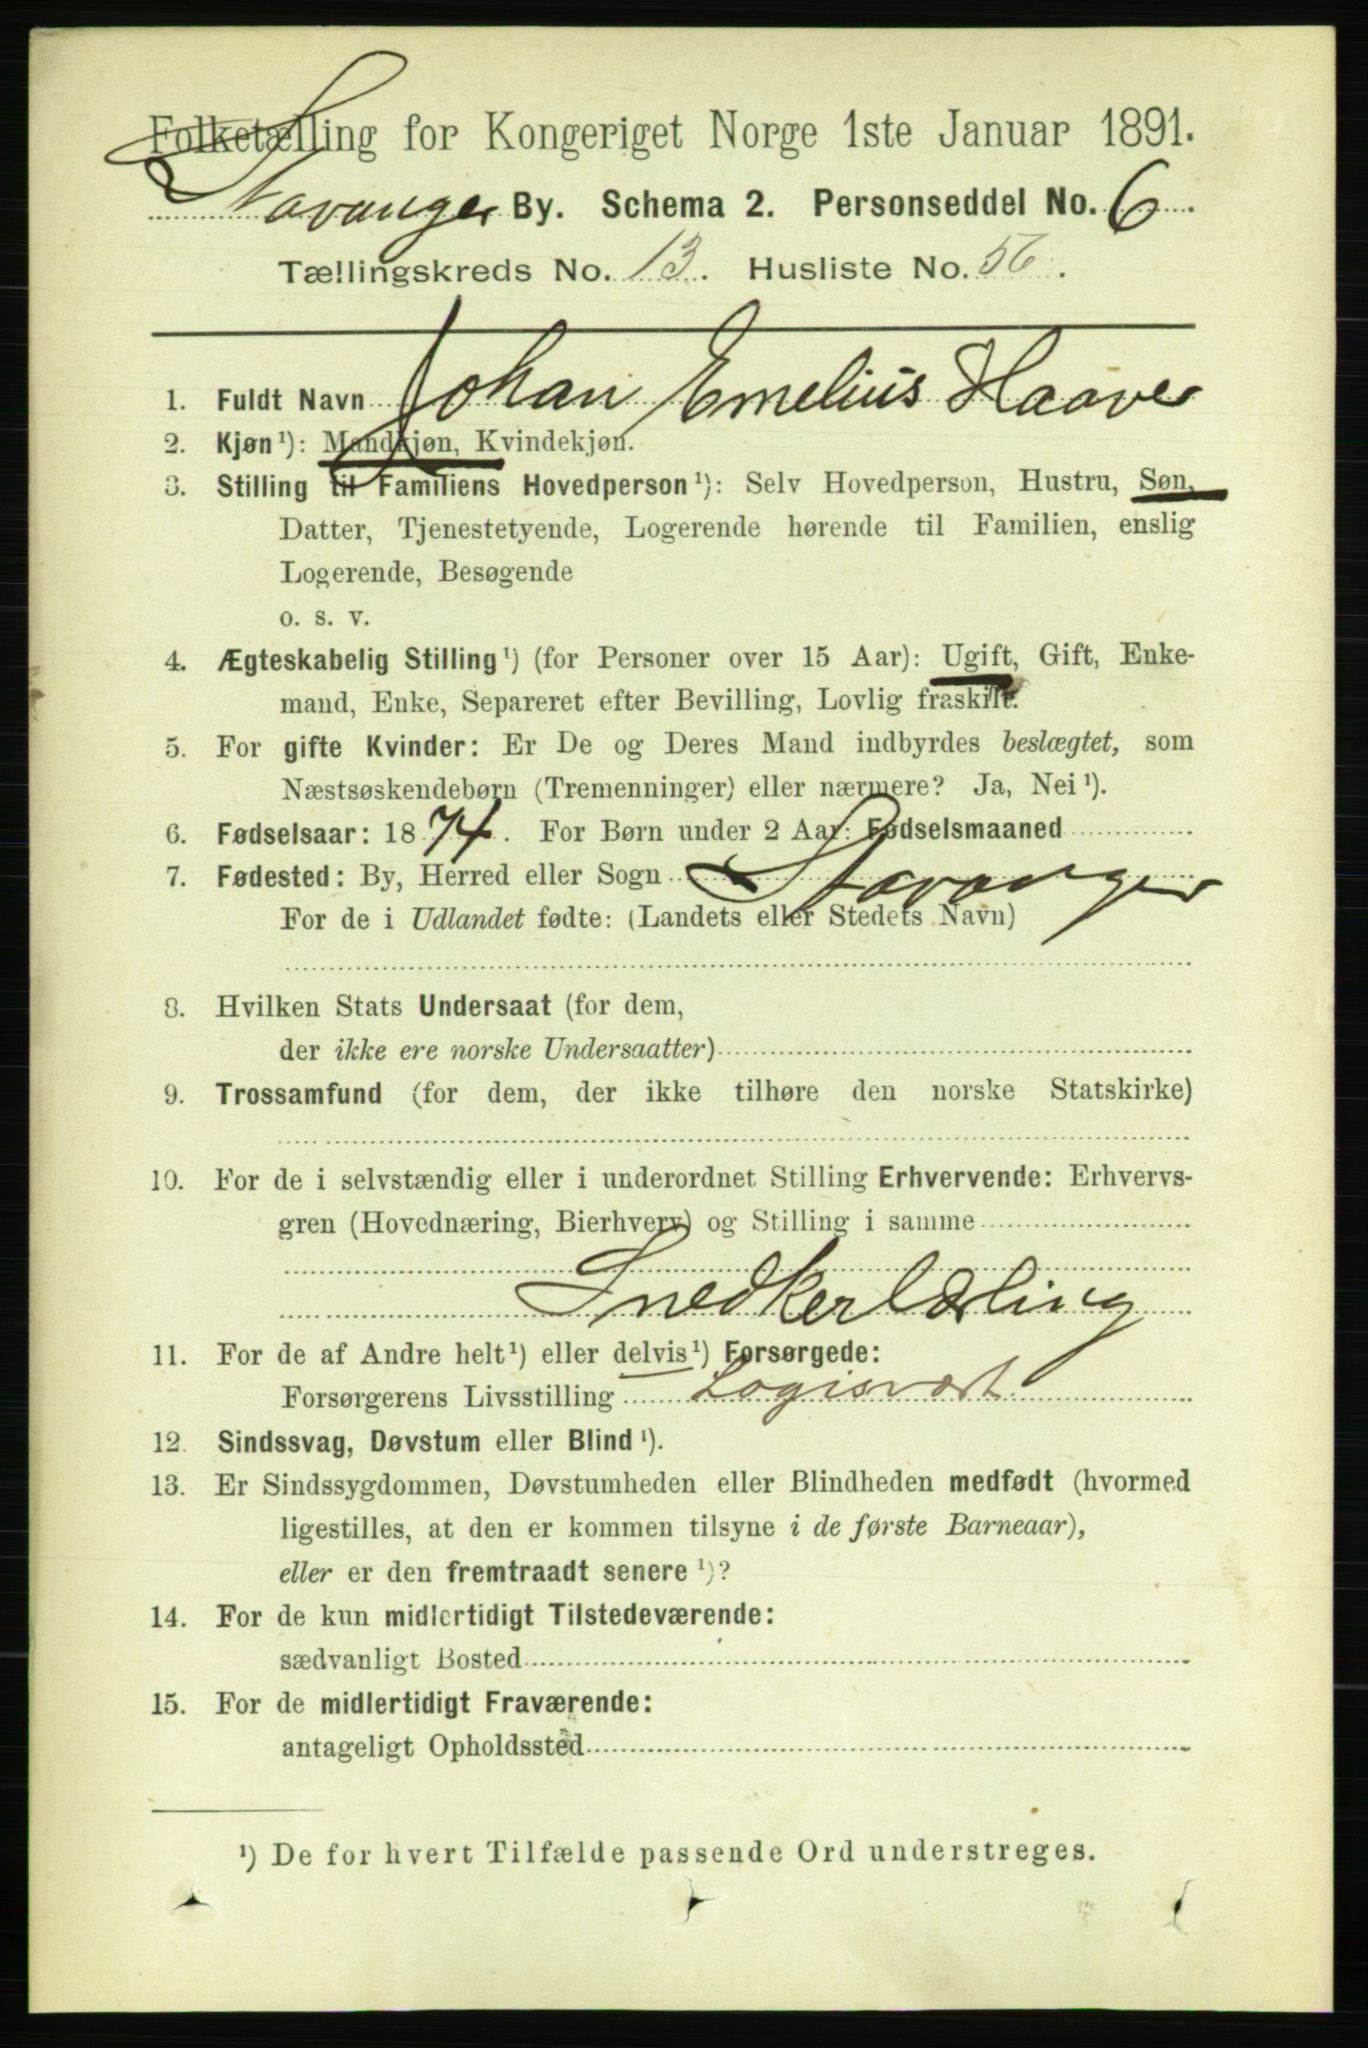 Folketælling for Kongeriget Norge 1ste Januar 1891.
Stavanger By. Schema 2. Personseddel No. 6.
Tællingskreds No. 13. Husliste No. 56.
1. Fuldt Navn Johan Emelius Haaver
2. Kjøn¹): Mandkjøn, Kvindekjøn.
3. Stilling til Familiens Hovedperson¹): Selv Hovedperson, Hustru, Søn,
Datter, Tjenestetyende, Logerende hørende til Familien, enslig
Logerende, Besøgende
o. s. v.
4. Ægteskabelig Stilling¹) (for Personer over 15 Aar): Ugift, Gift, Enke-
mand, Enke, Separeret efter Bevilling, Lovlig fraskilt.
5. For gifte Kvinder: Er De og Deres Mand indbyrdes beslægtet, som
Næstsøskendebørn (Tremenninger) eller nærmere? Ja, Nei¹).
6. Fødselsaar: 1874. For Børn under 2 Aar: Fødselsmaaned
7. Fødested: By, Herred eller Sogn Stavanger
For de i Udlandet fødte: (Landets eller Stedets Navn)
8. Hvilken Stats Undersaat (for dem,
der ikke ere norske Undersaatter)
9. Trossamfund (for dem, der ikke tilhøre den norske Statskirke)
10. For de i selvstændig eller i underordnet Stilling Erhvervende: Erhvervs-
gren (Hovednæring, Bierhverv) og Stilling i samme
Snedkerlærling
11. For de af Andre helt¹) eller delvis¹) Forsørgede:
Forsørgerens Livsstilling Logisvært
12. Sindssvag, Døvstum eller Blind¹).
13. Er Sindssygdommen, Døvstumheden eller Blindheden medfødt (hvormed
ligestilles, at den er kommen tilsyne i de første Barneaar),
eller er den fremtraadt senere¹)?
14. For de kun midlertidigt Tilstedeværende:
sædvanligt Bosted
15. For de midlertidigt Fraværende:
antageligt Opholdssted
¹) De for hvert Tilfælde passende Ord understreges.